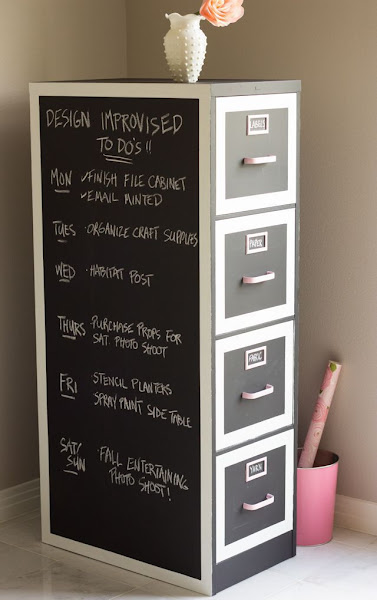 DESIGN IMPROVISED
TO DO'S!!
MON ✓FINISH FILE CABINET
✓EMAIL MINTED
TUES ·ORGANIZE CRAFT SUPPLIES
WED ·HABITAT POST
THURS ·PURCHASE PROPS FOR
SAT. PHOTO SHOOT
FRI ·STENCIL PLANTERS
SPRAY PAINT SIDE TABLE
SAT/
SUN ·FALL ENTERTAINING
PHOTO SHOOT!
PAPER
FABRIC
YARN